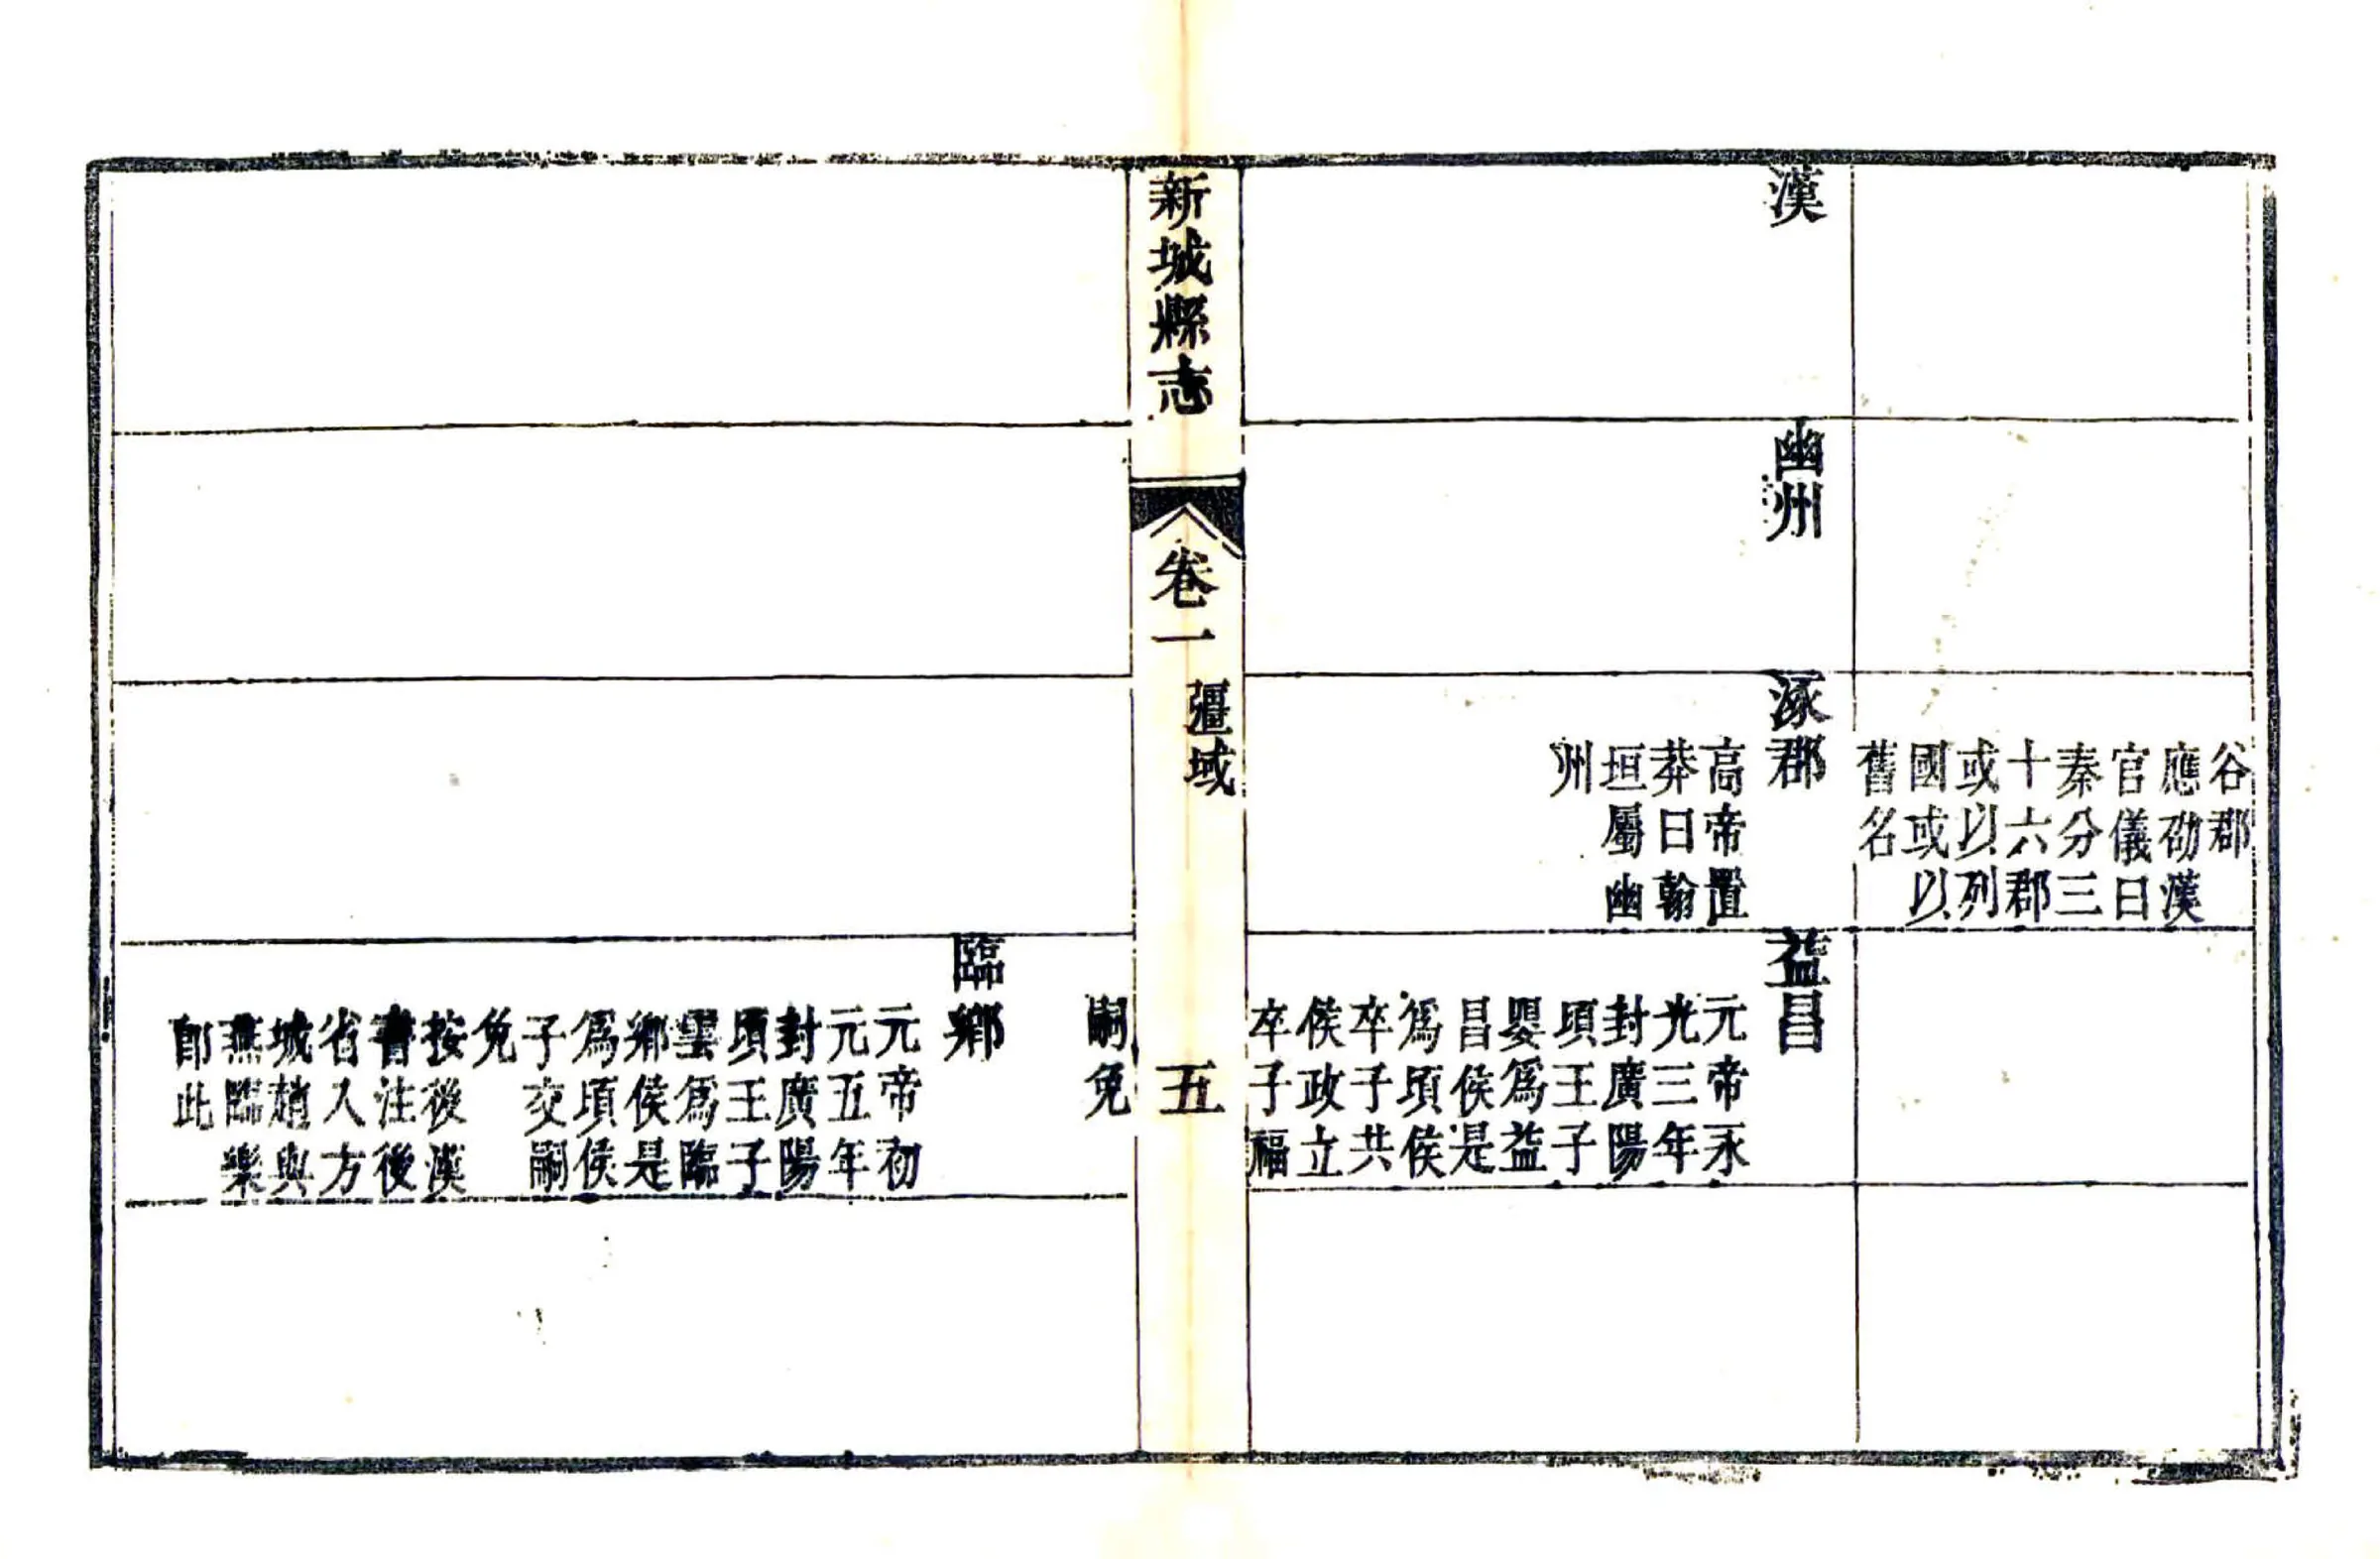 谷郡
應劭漢
官儀曰
秦分三
十六郡
或以列
國或以
舊名
漢
幽州
涿郡
高帝置
莽曰翰
垣屬幽
州
益昌
元帝永
光三年
封廣陽
頃王子
嬰爲益
昌侯是
爲頃侯
卒子共
侯政立
卒子福
新城縣志
卷一
疆域
五
嗣免
臨鄉
元帝初
元五年
封廣陽
頃王子
雲爲臨
鄉侯是
爲頃侯
子交嗣
免
按後漢
書注後
省入方
城趙與
燕臨樂
卽此